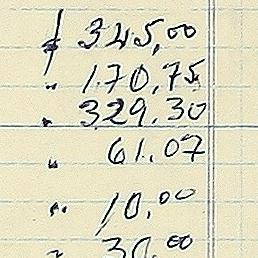 $ 345.00
" 170.75
" 329.30
" 61.07
" 10.00
" 30.00